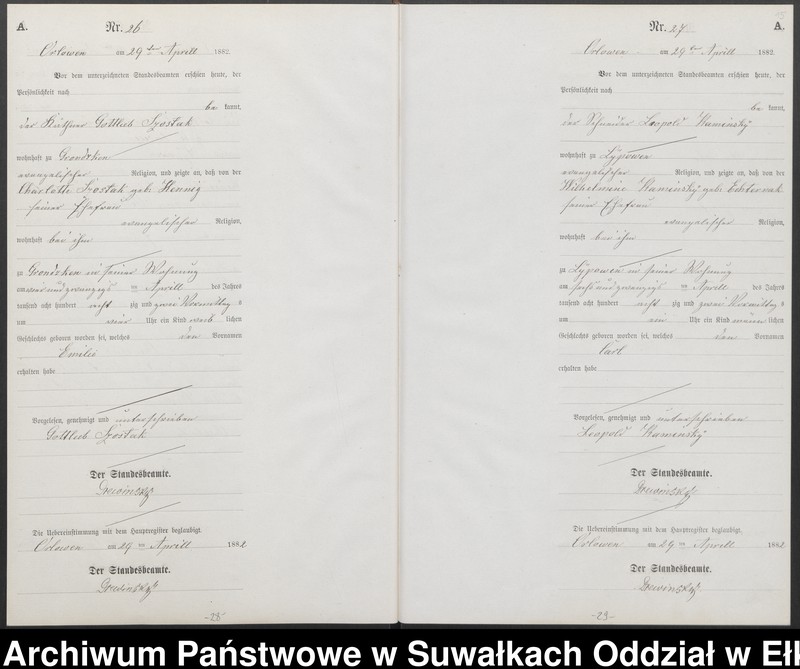 A.
Nr. 26
Orlowen am 29ten Aprill 1882.
Vor dem unterzeichneten Standesbeamten erschien heute, der
Persönlichkeit nach
be kannt,
der Käthner Gottlieb Szostak
wohnhaft zu Grondzken
evangelischer Religion, und zeigte an, daß von der
Charlotte Szostak geb. Hennig
seiner Ehefrau
evangelischer Religion,
wohnhaft bei ihm
zu Grondzken in seiner Wohnung
am vierundzwanzigs ten Aprill des Jahres
tausend acht hundert acht zig und zwei Vormittag s
um vier Uhr ein Kind weib lichen
Geschlechts geboren worden sei, welches den Vornamen
Emilie
erhalten habe
Vorgelesen, genehmigt und unterschrieben
Gottlieb Szostak
Der Standesbeamte.
Drewinsky
Die Uebereinstimmung mit dem Hauptregister beglaubigt.
Orlowen am 29 ten Aprill 1882
Der Standesbeamte.
Drewinsky
-28-
Nr. 27
A.
Orlowen am 29ten Aprill 1882.
Vor dem unterzeichneten Standesbeamten erschien heute, der
Persönlichkeit nach
be kannt,
der Schneider Leopold Kaminsky
wohnhaft zu Lÿpowen
evangelischer Religion, und zeigte an, daß von der
Wilhelmine Kaminsky geb.
seiner Ehefrau
evangelischer Religion,
wohnhaft bei ihm
zu Lÿpowen in seiner Wohnung
am sechsundzwanzigs ten Aprill des Jahres
tausend acht hundert acht zig und zwei Vormittag s
um ein Uhr ein Kind männ lichen
Geschlechts geboren worden sei, welches den Vornamen
Carl
erhalten habe
Vorgelesen, genehmigt und unterschrieben
Leopold Kaminsky
Der Standesbeamte.
Drewinsky
Die Uebereinstimmung mit dem Hauptregister beglaubigt.
Orlowen am 29 ten Aprill 1882
Der Standesbeamte.
Drewinsky
-29-
Archiwum Państwowe w Suwałkach Oddział w Eł